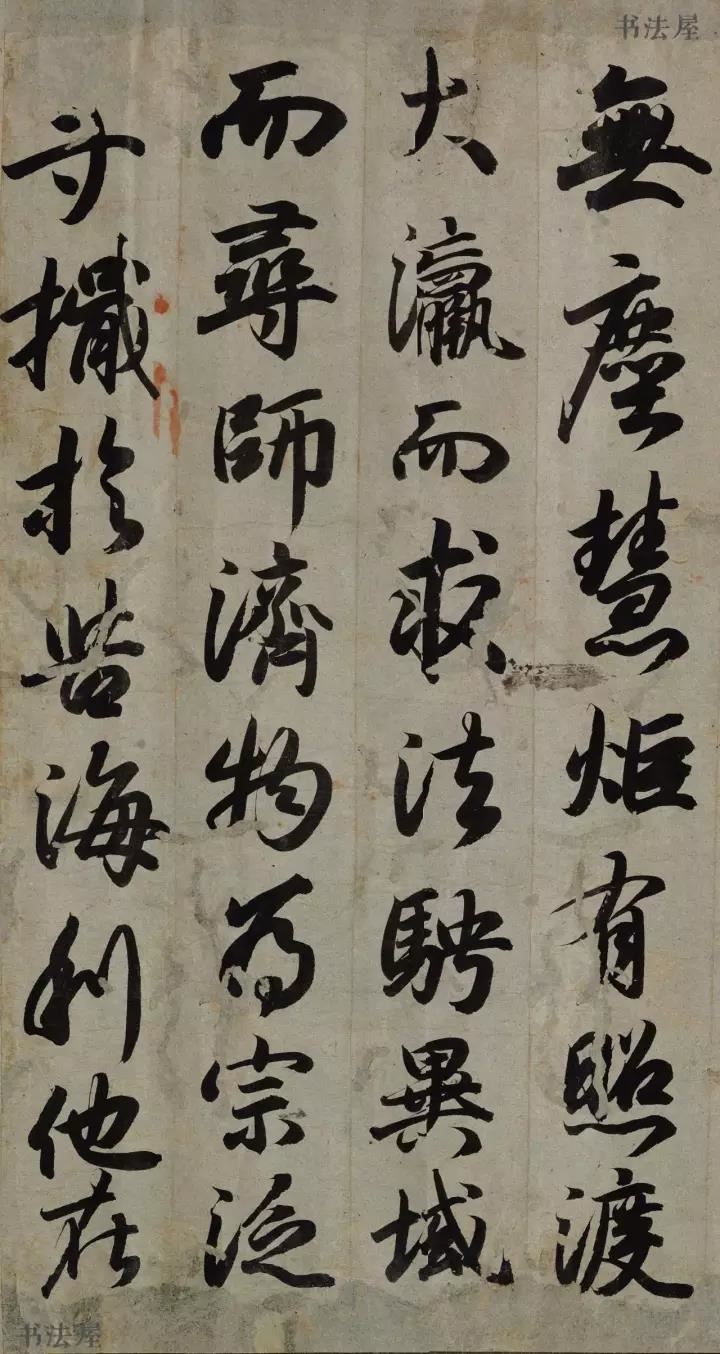 书法屋
無塵慧炬有照渡
大瀛而求法騁異域
而尋師濟物為宗泛
寸檝於苦海利他在
书法屋